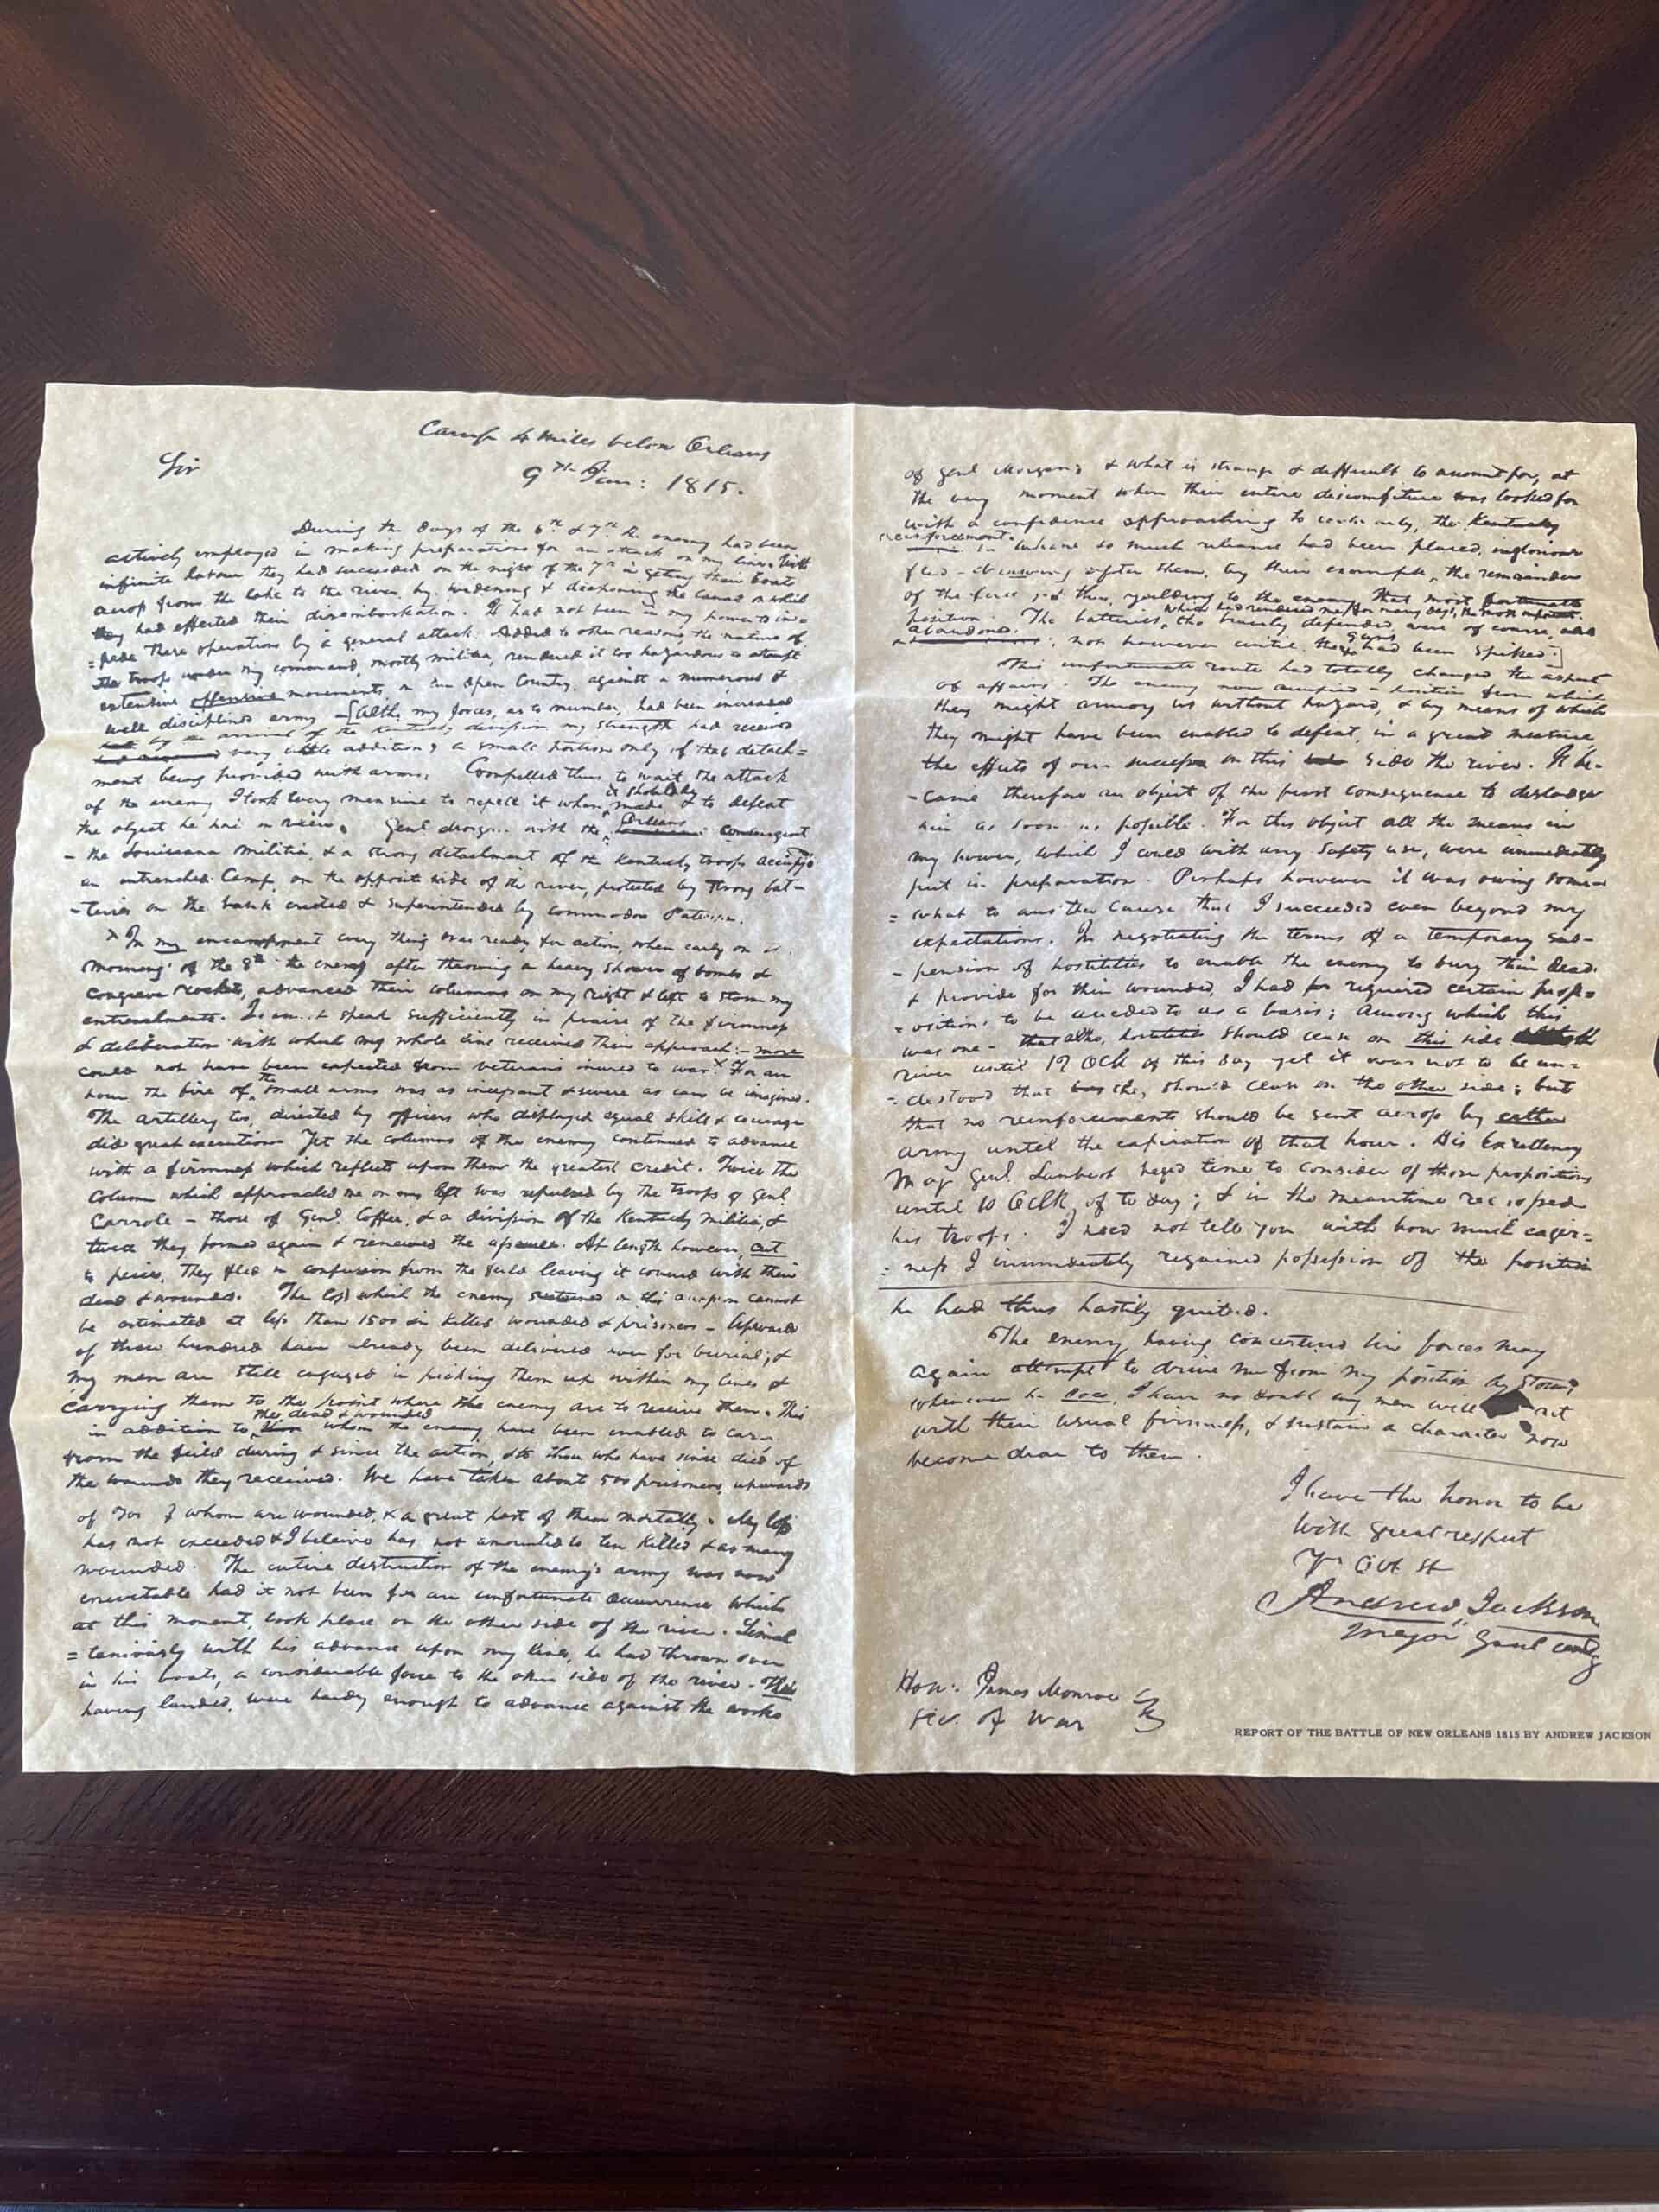 Camp 4 Miles below Orleans
9th Jan: 1815.
Sir
During the days of the 6th & 7th the enemy had been
actively employed in making preparations for an attack on my lines. With
infinite labour they had succeeded on the night of the 7th in getting their boats
across from the lake to the river, by widening & deepening the Canal on which
they had effected their disembarkation. It had not been in my power to im=
=pede these operations by a general attack. Added to other reasons the nature of
the troops under my command, mostly militia, rendered it too hazardous to attempt
extensive offensive movements in an open Country, against a numerous &
well disciplined army – [Altho my forces, as to number, had been increased
by the arrival of the Kentucky division my strength had received
very little addition; a small portion only of that detach=
ment being provided with arms: Compelled thus to wait the attack
of the enemy I took every measure to repell it when it should be made & to defeat
the object he had in view. Genl Morgan with the Orleans Contingent
– the Louisiana Militia, & a strong detachment of the Kentucky troops occupyd
an entrenched Camp, on the opposite side of the river, protected by strong bat–
–teries on the bank erected & superintended by commodore Paterson.
x In my encampment every thing was ready for action, when early on the
morning of the 8th the enemy after throwing a heavy shower of bombs &
congreve rockets, advanced their columns on my right & left to storm my
entrenchments. I cannot speak sufficiently in praise of the firmness
& deliberation with which my whole line received their approach:– more
could not have been expected from veterans inured to war x For an
hour the fire of the small arms was as incessant & severe as can be imagined.
The artillery too, directed by officers who displayed equal skill & courage
did great execution. Yet the columns of the enemy continued to advance
with a firmness which reflects upon them the greatest credit. Twice the
Column which approached me on my left was repulsed by the troops of Genl
Carrole – those of Genl. Coffee, & a division of the Kentucky militia, &
twice they formed again & renewed the assault. At length however, cut
to pieces, they fled in confusion from the field leaving it covered with their
dead & wounded. The loss which the enemy sustained on this occasion cannot
be estimated at less than 1500 in killed wounded & prisoners – Upwards
of three hundred have already been delivered over for burial; &
my men are still engaged in picking them up within my lines &
carrying them to the point where the enemy are to receive them. This
in addition to the dead & wounded whom the enemy have been enabled to carry
from the field during & since the action, & to those who have since died of
the wounds they received. We have taken about 500 prisoners, upwards
of 300 of whom are wounded, & a great part of them mortally. My loss
has not exceeded & I beleive has not amounted to ten killed & as many
wounded. The entire destruction of the enemy's army was now
inevitable had it not been for an unfortunate occurrence which
at this moment, took place on the other side of the river. Simul
=taniously with his advance upon my lines, he had thrown over
in his boats, a considerable force to the other side of the river – These
having landed, were hardy enough to advance against the works
of Genl Morgan; & what is strange & difficult to account for, at
the very moment when their entire discomfiture was looked for
with a confidence approaching to certainty, the Kentucky
reinforcements in whom so much reliance had been placed, ingloriously
fled – drawing after them, by their example, the remainder
of the force; & thus, yielding to the enemy that most fortunate
position. The batteries, which had rendered me, for many days, the most important
the bravely defended, were of course,
abandoned; not however until the guns had been spiked.]
This unfortunate route had totally changed the aspect
of affairs. The enemy now occupied a position from which
they might annoy us without hazard, & by means of which
they might have been enabled to defeat, in a great measure
the effects of our success on this side the river. It be-
-came therefore an object of the first consequence to dislodge
him as soon as possible. For this object all the means in
my power, which I could with any safety use, were immediately
put in preparation. Perhaps however it was owing some–
= what to another cause that I succeeded even beyond my
expectations. In negotiating the terms of a temporary sus–
–pension of hostilities to enable the enemy to bury their dead
& provide for their wounded, I had required certain propo=
=sitions to be acceded to as a basis; among which this
was one – that altho, hostilities should cease on this side
river until 12 Ock of this day yet it was not to be un=
=derstood that they should cease on the other side; but
that no reinforcements should be sent across by either
army until the expiration of that hour. His Excellency
Maj Genl. Lambert beged time to consider of those propositions
until 10 OClk of to day; & in the meantime recrossed
his troops. I need not tell you with how much eager=
=ness I immediately regained possession of the position
he had thus hastily quited.
The enemy having concerted his forces may
again attempt to drive me from my position by storm;
whenever he does, I have no doubt my men will act
with their usual firmness, & sustain a character now
become dear to them.
I have the honor to be
With great respect
Yr Obt St
Andrew Jackson
Major Genl comdg
Hon: James Monroe
Sec. of War
REPORT OF THE BATTLE OF NEW ORLEANS 1815 BY ANDREW JACKSON